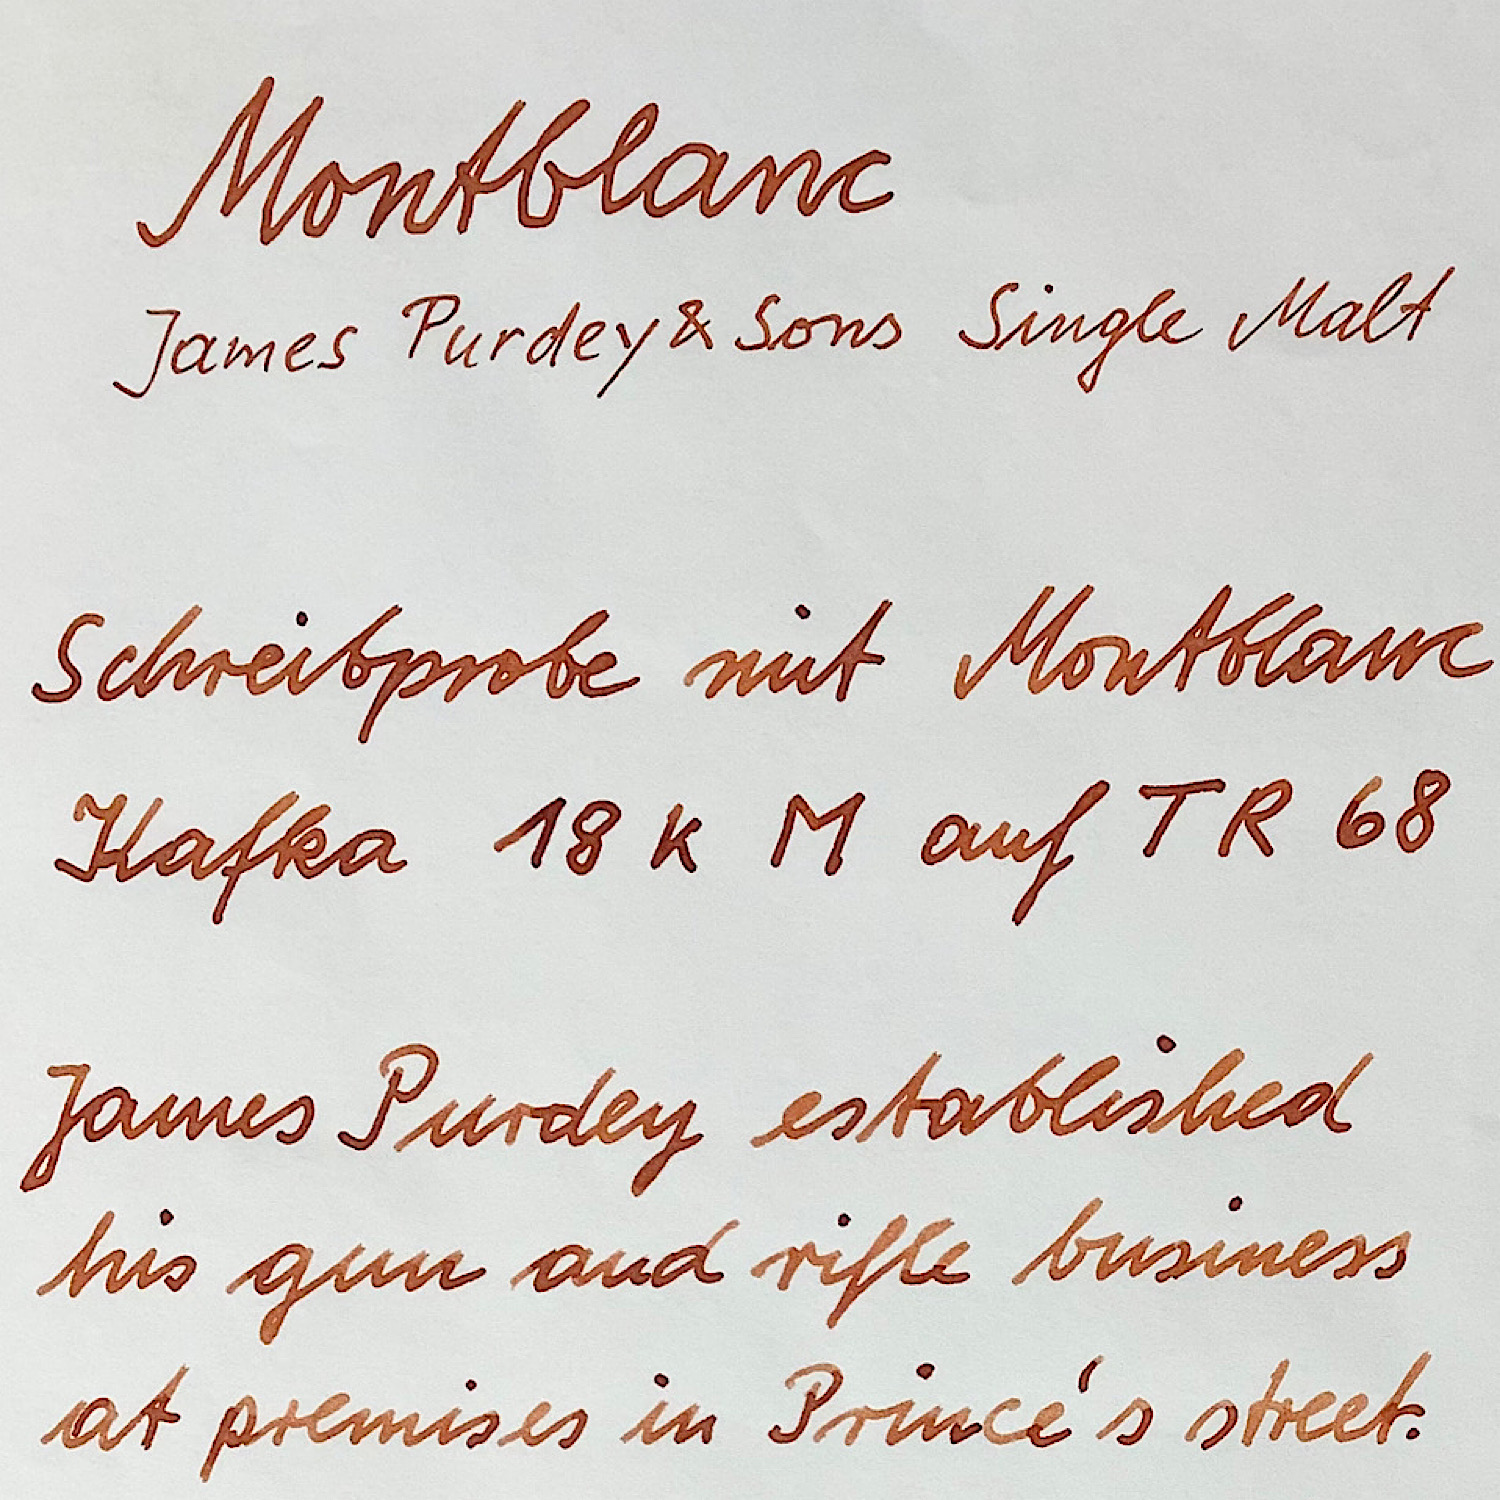 Montblanc
James Purdey & Sons Single Malt
Schreibprobe mit Montblanc
Kafka 18 K M auf TR 68
James Purdey established
his gun and rifle business
at premises in Prince's street.